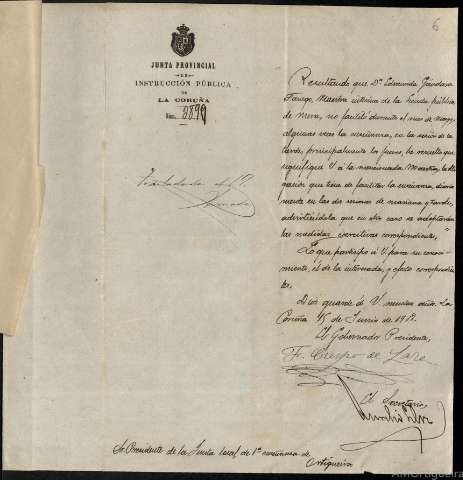 6
JUNTA PROVINCIAL
DE
INSTRUCCIÓN PÚBLICA
DE
LA CORUÑA
Núm.
Resultando que Dª Edmunda
maestra interina de la Escuela pública
de Mera, no facilitó durante el mes de Mayo,
algunas veces la enseñanza, en la sesión de la
tarde, principalmente los jueves, he resuelto que
notifique V á la mencionada Maestra, la obli-
gación que tiene de facilitar la enseñanza, diaria-
mente en las dos sesiones de mañana y tarde,
advirtiéndola que en otro caso se adoptarán
las medidas coercitivas correspondientes.
Lo que participo á V. para su conoci-
miento, el de la interesada, y efectos correspondien-
tes.
Dios guarde á V. muchos años. La
Coruña 15 de Junio de 1912.
El Gobernador Presidente,
Fr. Crespo de Lara
El Secretario,
Sr. Presidente de la Junta local de 1ª enseñanza de
Ortigueira